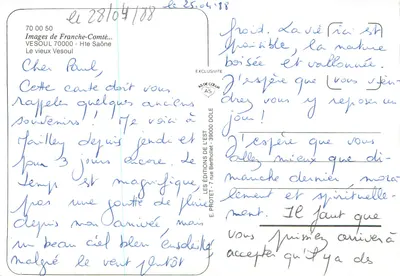 le 28/04/88
le 25-04-88
70 00 50
Images de Franche-Comté...
VESOUL 70000 - Hte Saône
Le vieux Vesoul
EXCLUSIVITÉ
LES ÉDITIONS DE L'EST
E. PROTET - 7 rue Berthollet - 39000 DOLE
Cher Paul,
Cette carte doit vous
rappeler quelques anciens
souvenirs! Me voici à
depuis jeudi et
pour 3 jours encore. Le
temps est magnifique,
pas une goutte de pluie
depuis mon arrivée, mais
un beau ciel bleu
malgré le vent plutôt
froid. La vie ici est
paisible, la nature
boisée et vallonnée.
J'espère que (vous) vien-
drez vous y reposer un
jour!
J'espère que vous
allez mieux que di-
manche dernier, mora-
lement et spirituelle-
ment. Il faut que
vous puissiez arriver à
accepter qu'il y a ds